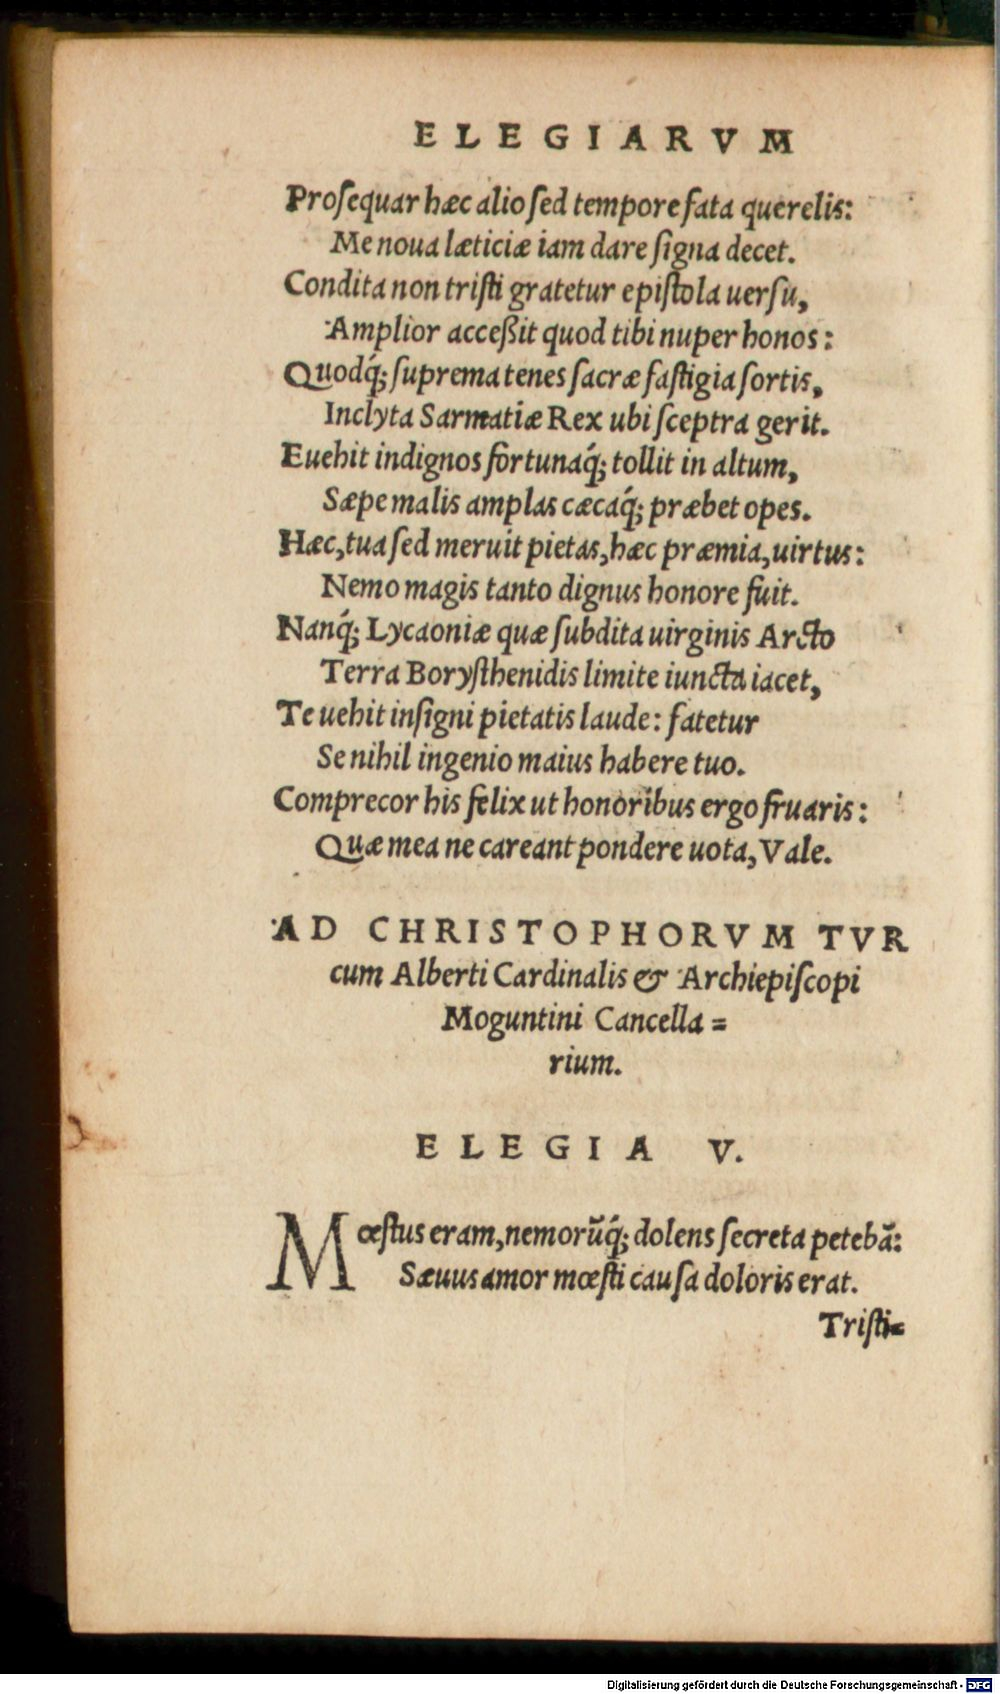 ELEGIARVM
Proſequar hæc alio ſed tempore fata querelis:
Me noua læticiæ iam dare ſigna decet.
Condita non triſti gratetur epiſtola uerſu,
Amplior acceßit quod tibi nuper honos:
Quodq́; ſuprema tenes ſacræ faſtigia ſortis,
Inclyta Sarmatiæ Rex ubi ſceptra gerit.
Euehit indignos fortunaq́; tollit in altum,
Sæpe malis amplas cæcaq́; præbet opes.
Hæc, tua ſed meruit pietas, hæc præmia, uirtus:
Nemo magis tanto dignus honore fuit.
Nanq́; Lycaoniæ quæ ſubdita uirginis Arcto
Terra Boryſthenidis limite iuncta iacet,
Te uehit inſigni pietatis laude: fatetur
Se nihil ingenio maius habere tuo.
Comprecor his felix ut honoribus ergo fruaris:
Quæ mea ne careant pondere uota, Vale.
AD CHRISTOPHORVM TVR
cum Alberti Cardinalis & Archiepiſcopi
Moguntini Cancella=
rium.
ELEGIA V.
Mœſtus eram, nemorũq́; dolens ſecreta petebã:
Sæuus amor mœſti cauſa doloris erat.
Triſti=
Digitalisierung gefördert durch die Deutsche Forschungsgemeinschaft - DFG